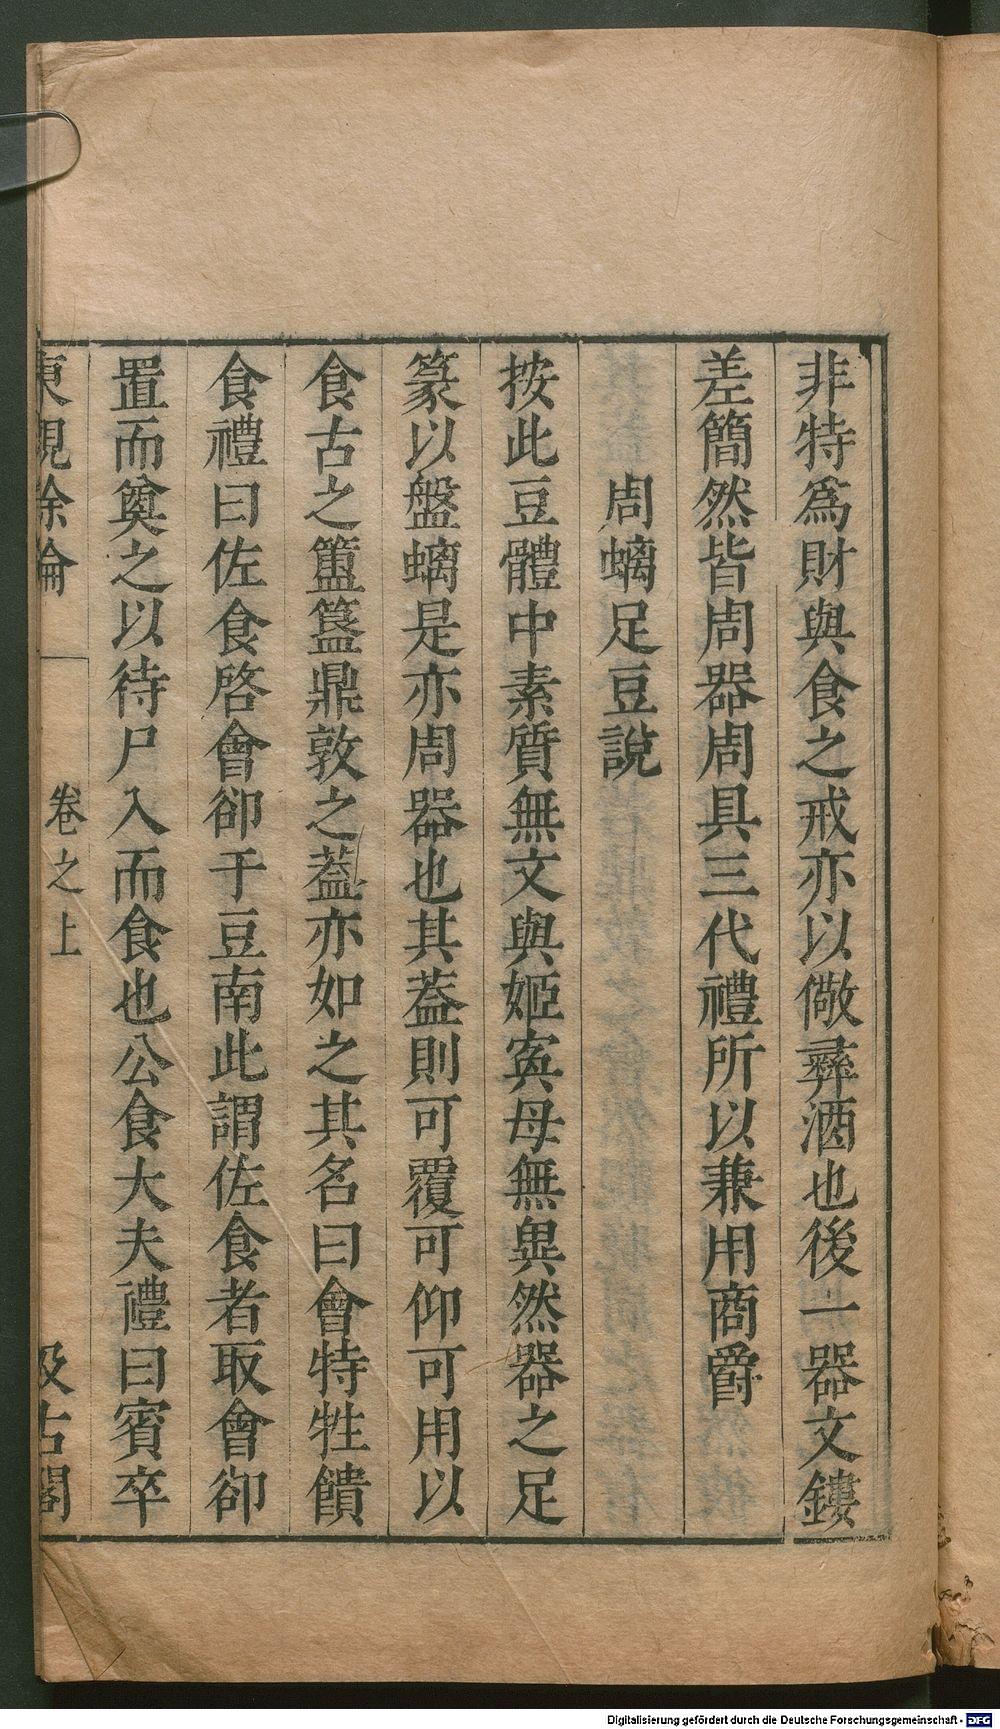 非特爲財與食之戒亦以儆彝酒也後一器文鏤
差簡然皆周器周具三代禮所以兼用商爵
周螭足豆說
按此豆體中素質無文與姬寏母無異然器之足
篆以盤螭是亦周器也其葢則可覆可仰可用以
食古之簠簋鼎敦之葢亦如之其名曰會特牲饋
食禮曰佐食啓會卻于豆南此謂佐食者取會卻
置而奠之以待尸入而食也公食大夫禮曰賓卒
東觀餘論 卷之上 汲古閣
Digitalisierung gefördert durch die Deutsche Forschungsgemeinschaft - DFG